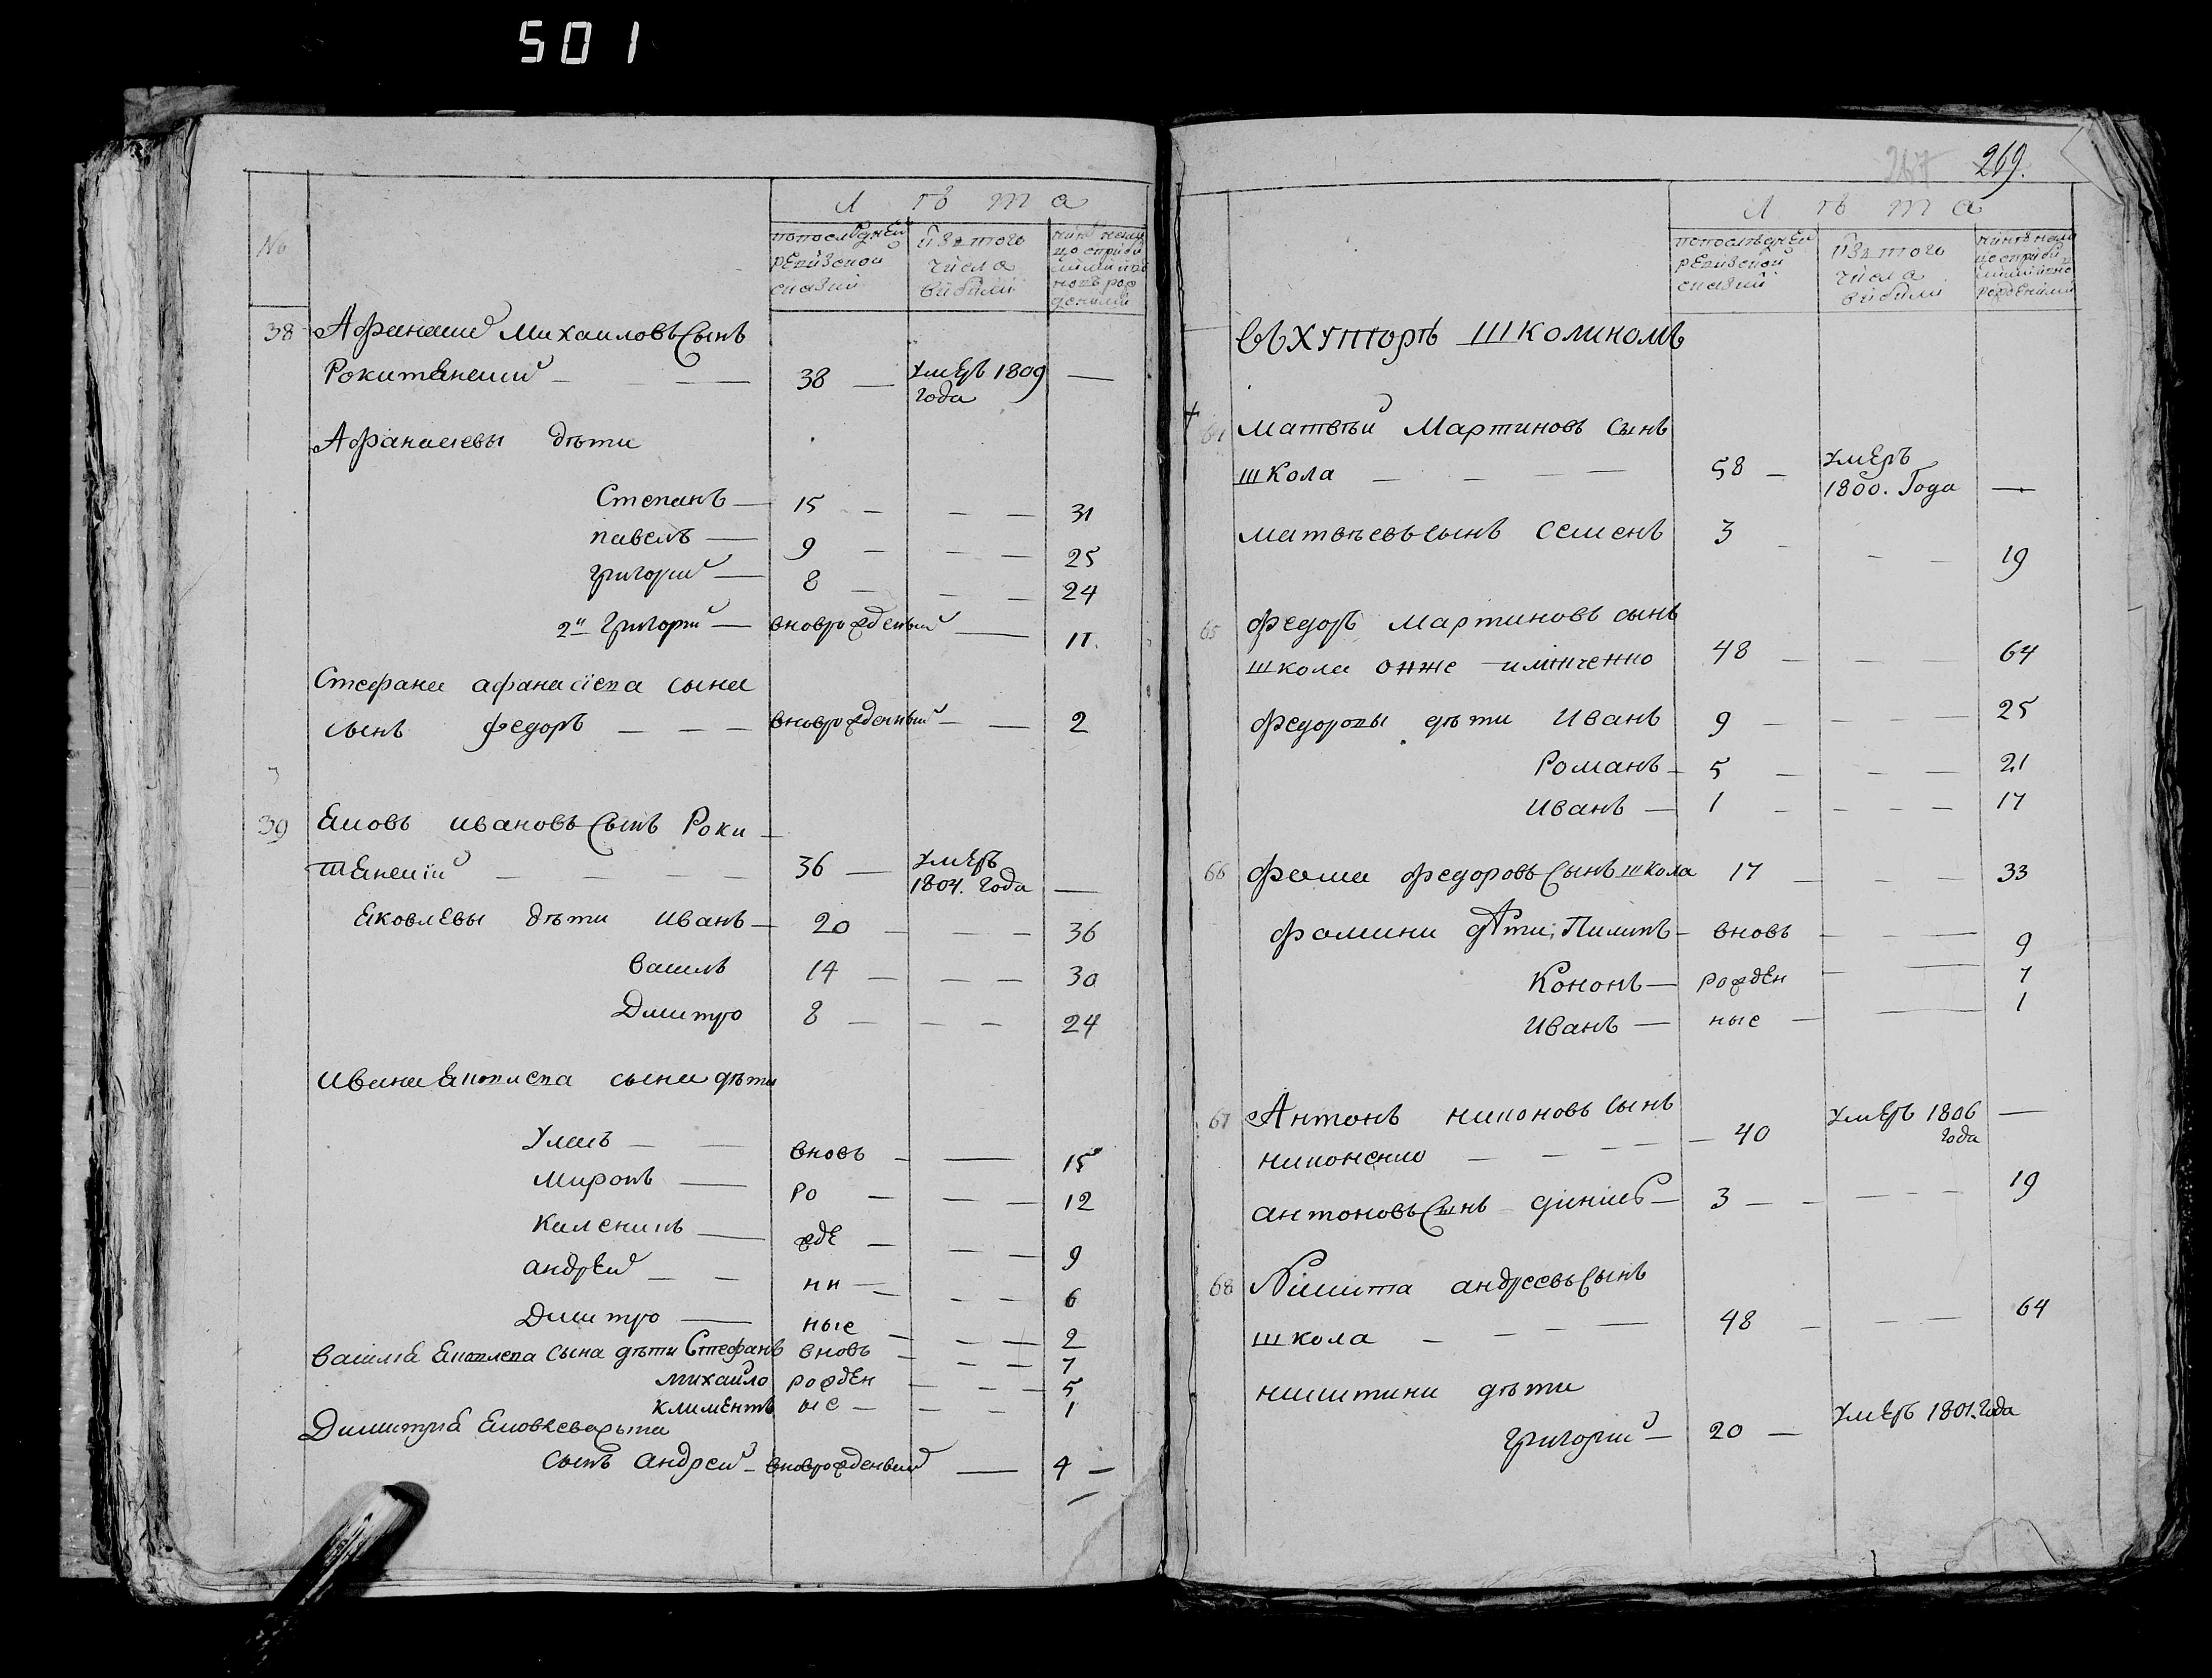 501
№
Лѣта
попоследнеи ревизской сказки
изъ того числа выбыли
38 Афанасий Михаиловъ Сынъ
Рокитянский — 38 — умеръ 1809 года —
Афанасиевы дѣти
Степанъ — 15 — — — 31
павелъ — 9 — — — 25
григорий — 8 — — — 24
2й григорий — вноврожденный — 11.
Стефана афанасиева сына
сынъ федоръ — — — вноврожденный — — 2
39 Яковъ ивановъ Сынъ Роки-
тянский — — — — 36 — умеръ 1804. года —
Яковлевы дѣти иванъ — 20 — — — 36
василь 14 — — — 30
Дмитро 8 — — — 24
ивана Яковлева сына дѣти
Уласъ — — вновь — — 15
миронъ — ро — — — 12
каленикъ — жде — — — 9
андрей — — нн — — — 6
Дмитро — ные — — — 2
василя Яковлева сына дѣти Стефанъ вновь — — — 7
михайло рожден — — — 5
климентъ ые — — — 1
Димитрия Яковлева сына
сынъ андрей — вноврожденный — 4 —
269.
Лѣта
попоследнеи ревизской сказки
изъ того числа выбыли
въ хуторѣ школиномъ
61 матвѣй мартиновъ сынъ
школа — — — — 58 — умеръ 1800. года —
матвѣевъ сынъ семенъ 3 — — — 19
65 федоръ мартиновъ сынъ
школа онже 48 — — — 64
федоровы дѣти иванъ 9 — — — 25
романъ — 5 — — — 21
иванъ — 1 — — — 17
66 фома федоровъ сынъ школа 17 — — — 33
фомини дѣти; Пилипъ — вновь — — — 9
Кононъ — рожден — — 7
иванъ — ные — — 1
67 Антонъ никоновъ сынъ
никоненко — — — — 40 умеръ 1806 года —
антоновъ Сынъ — 3 — — — — — 19
68 Никита андреевъ Сынъ
школа — — — — 48 — — — 64
никитини дѣти
григорий — 20 — умеръ 1801. года